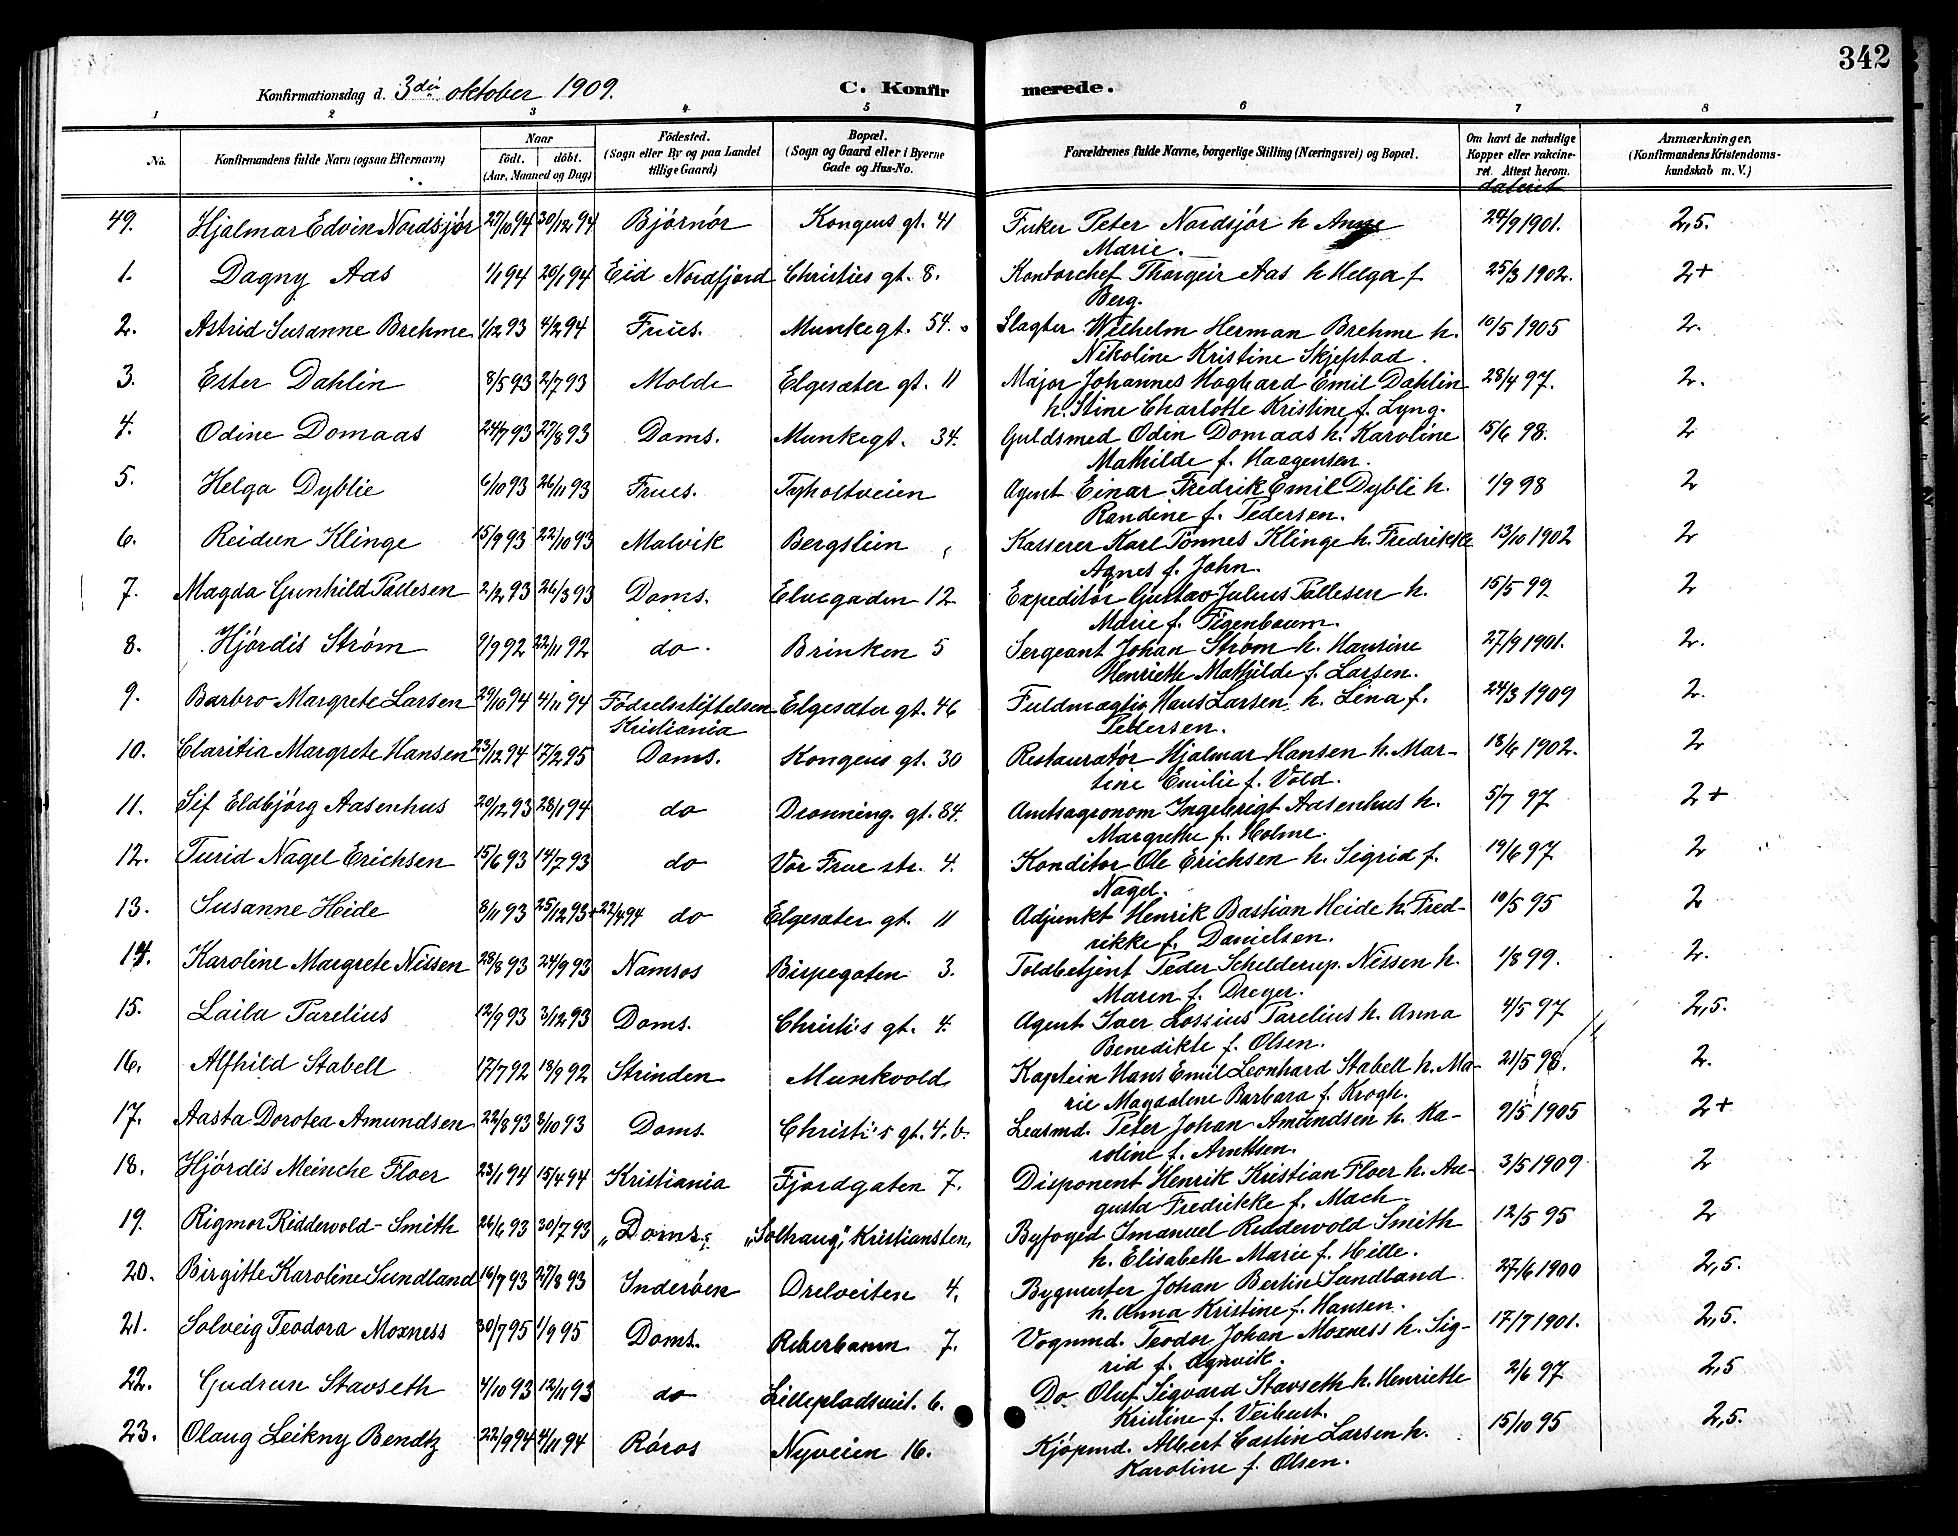 342
Konfirmationsdag d. 3die oktober 1909. C. Konfir merede.
1 2 3 4 5 6 7 8
No. Konfirmandens fulde Navn (ogsaa Efternavn) Naar født. døbt. (Aar, Maaned og Dag) Födested. (Sogn eller By og paa Landet tillige Gaard) Bopæl. (Sogn og Gaard eller i Byerne Gade og Hus-No. Forældrenes fulde Navne, borgerlige Stilling (Næringsvei) og Bopæl. Om havt de naturlige Kopper eller vakcineret. Attest herom. dateret Anmærkninger. (Konfirmandens Kristendomskundskab m. V.)
49. Hjalmar Edvin Nordsjør 27/10 94 30/12 94 Bjørnør Kongens gt. 41 Fisker Peter Nordsjór h Anne 24/9 1901. 2,5.
Marie.
1. Dagny Aas 1/1 94 20/1 94 Eid Nordfjord Christies gt. 8. Kontorchef Thorgeir Aas h Helga f 25/3 1902. 2+
Berg.
2. Astrid Susanne Brehme 1/12 93 4/2 94 Frues. Munkegt. 54. Slagter Wilhelm Herman Brehme h. 10/5 1905 2.
Nikoline Kristine Skjefstad.
3. Ester Dahlin 8/5 93 2/7 93 Molde Elgesæter gt. 11 Major Johannes Hagbard Emil Dahlin 28/4 97. 2.
h. Stine Charlotte Kristine f. Lyng.
4. Odine Domaas 24/7 93 27/8 93 Doms. Munkegt. 34. Guldsmed Odin Domaas h. Karoline 15/6 98. 2
Mathilde f. Haagensen.
5. Helga Dyblie 6/10 93 26/11 93 Frues. Tyholtveien Agent Einar Fredrik Emil Dybli h. 1/9 98 2
Randine f. Pedersen.
6. Reidun Klinge 15/9 93 22/10 93 Malvik Bergslien Kasserer Karl Tönnes Klinge h. Fredrikke 13/10 1902 2
Agnes f. John.
7. Magda Gunhild Pallesen 2/2 93 26/3 93 Doms. Elvegaden 12 Expeditör Gustav Julius Pallesen h. 15/5 99 2
Marie f. Figenbaum.
8. Hjördis Strøm 9/9 92 22/11 92 do. Brinken 5 Sergeant Johan Strøm h. Hansine 27/9 1901. 2.
Henriette Mathilde f. Larsen.
9. Barbro Margrete Larsen 29/10 94 4/11 94 Födselsstiftelsen Elgesæter gt. 46 Fuldmægtig Hans Larsen h. Lina f. 24/3 1909 2.
Kristiania Pedersen.
10. Claritia Margrete Hansen 23/12 94 17/2 95 Doms. Kongens gt. 30 Restauratør Hjalmar Hansen h. Mar- 18/6 1902. 2
tine Emilie f. Vold.
11. Sif Eldbjörg Aasenhus 20/12 93 28/1 94 do Dronning. gt. 84. Amtsagronom Ingebrigt Aasenhus h. 5/7 97 2+
Margrethe f. Holme.
12. Turid Nagel Erichsen 15/6 93 14/7 93 do Vor Frue str. 4. Konditor Ole Erichsen h. Sigrid f. 19/6 97. 2
Nagel.
13. Susanne Heide 8/11 93 25/12 93 + 22/4 94 do Elgesæter gt. 11 Adjunkt Henrik Bastian Heide h. Fred- 10/5 95 2
rikke f. Danielsen.
14. Karoline Margrete Nissen 28/8 93 24/9 93 Namsos Bispegaten 3. Toldbetjent Peder Schelderup Nissen h. 1/8 99. 2.
Maren f. Dreyer.
15. Laila Parelius 12/9 93 3/12 93 Doms. Christies gt. 4. Agent Iver Lossius Parelius h. Anna 4/5 97 2,5.
Benedikte f. Olsen.
16. Alfhild Stabell 17/7 92 18/9 92 Strinden Munkvold Kaptein Hans Emil Leonhard Stabell h. Ma- 21/5 98. 2.
rie Magdalene Barbara f. Krogh.
17. Aasta Dorotea Amundsen 22/8 93 8/10 93 Doms. Christies gt. 4.b. Leasmd. Peter Johan Amundsen h. Ka- 9/5 1905 2+
roline f. Arntsen.
18. Hjördis Meinche Floer 23/1 94 15/4 94 Kristiania Fjordgaten 7. Disponent Henrik Kristian Floer h. Au- 3/5 1909 2
gusta Fredrikke f. Mach.
19. Rigmor Riddervold-Smith 26/6 93 30/7 93 „Doms." „Solhaug", Kristiansten. Byfoged Imanuel Riddervold Smith 12/5 95 2
h. Elisabeth Marie f. Hille.
20. Birgitte Karoline Sundland 16/7 93 27/8 93 Inderöen Ørelveiten 4. Bygmester Johan Bertin Sundland 27/6 1900 2,5.
h. Anna Kristine f. Hansen.
21. Solveig Teodora Moxness 30/7 95 1/9 95 Doms. Reberbanen 7. Vognmd. Teodor Johan Moxness h. Sig- 17/7 1901. 2,5.
rid f.
22. Gudrun Stavseth 4/10 93 12/11 93 do Lillepladsveit. 6. Do Oluf Sigvard Stavseth h. Henriette 2/6 97 2,5
Kristine f. Veibust.
23. Olaug Leikny Bendtz 22/9 94 4/11 94 Röros Nyveien 16. Kjöpmd. Albert Castin Larsen h. 15/10 95 2,5.
Karoline f. Olsen.